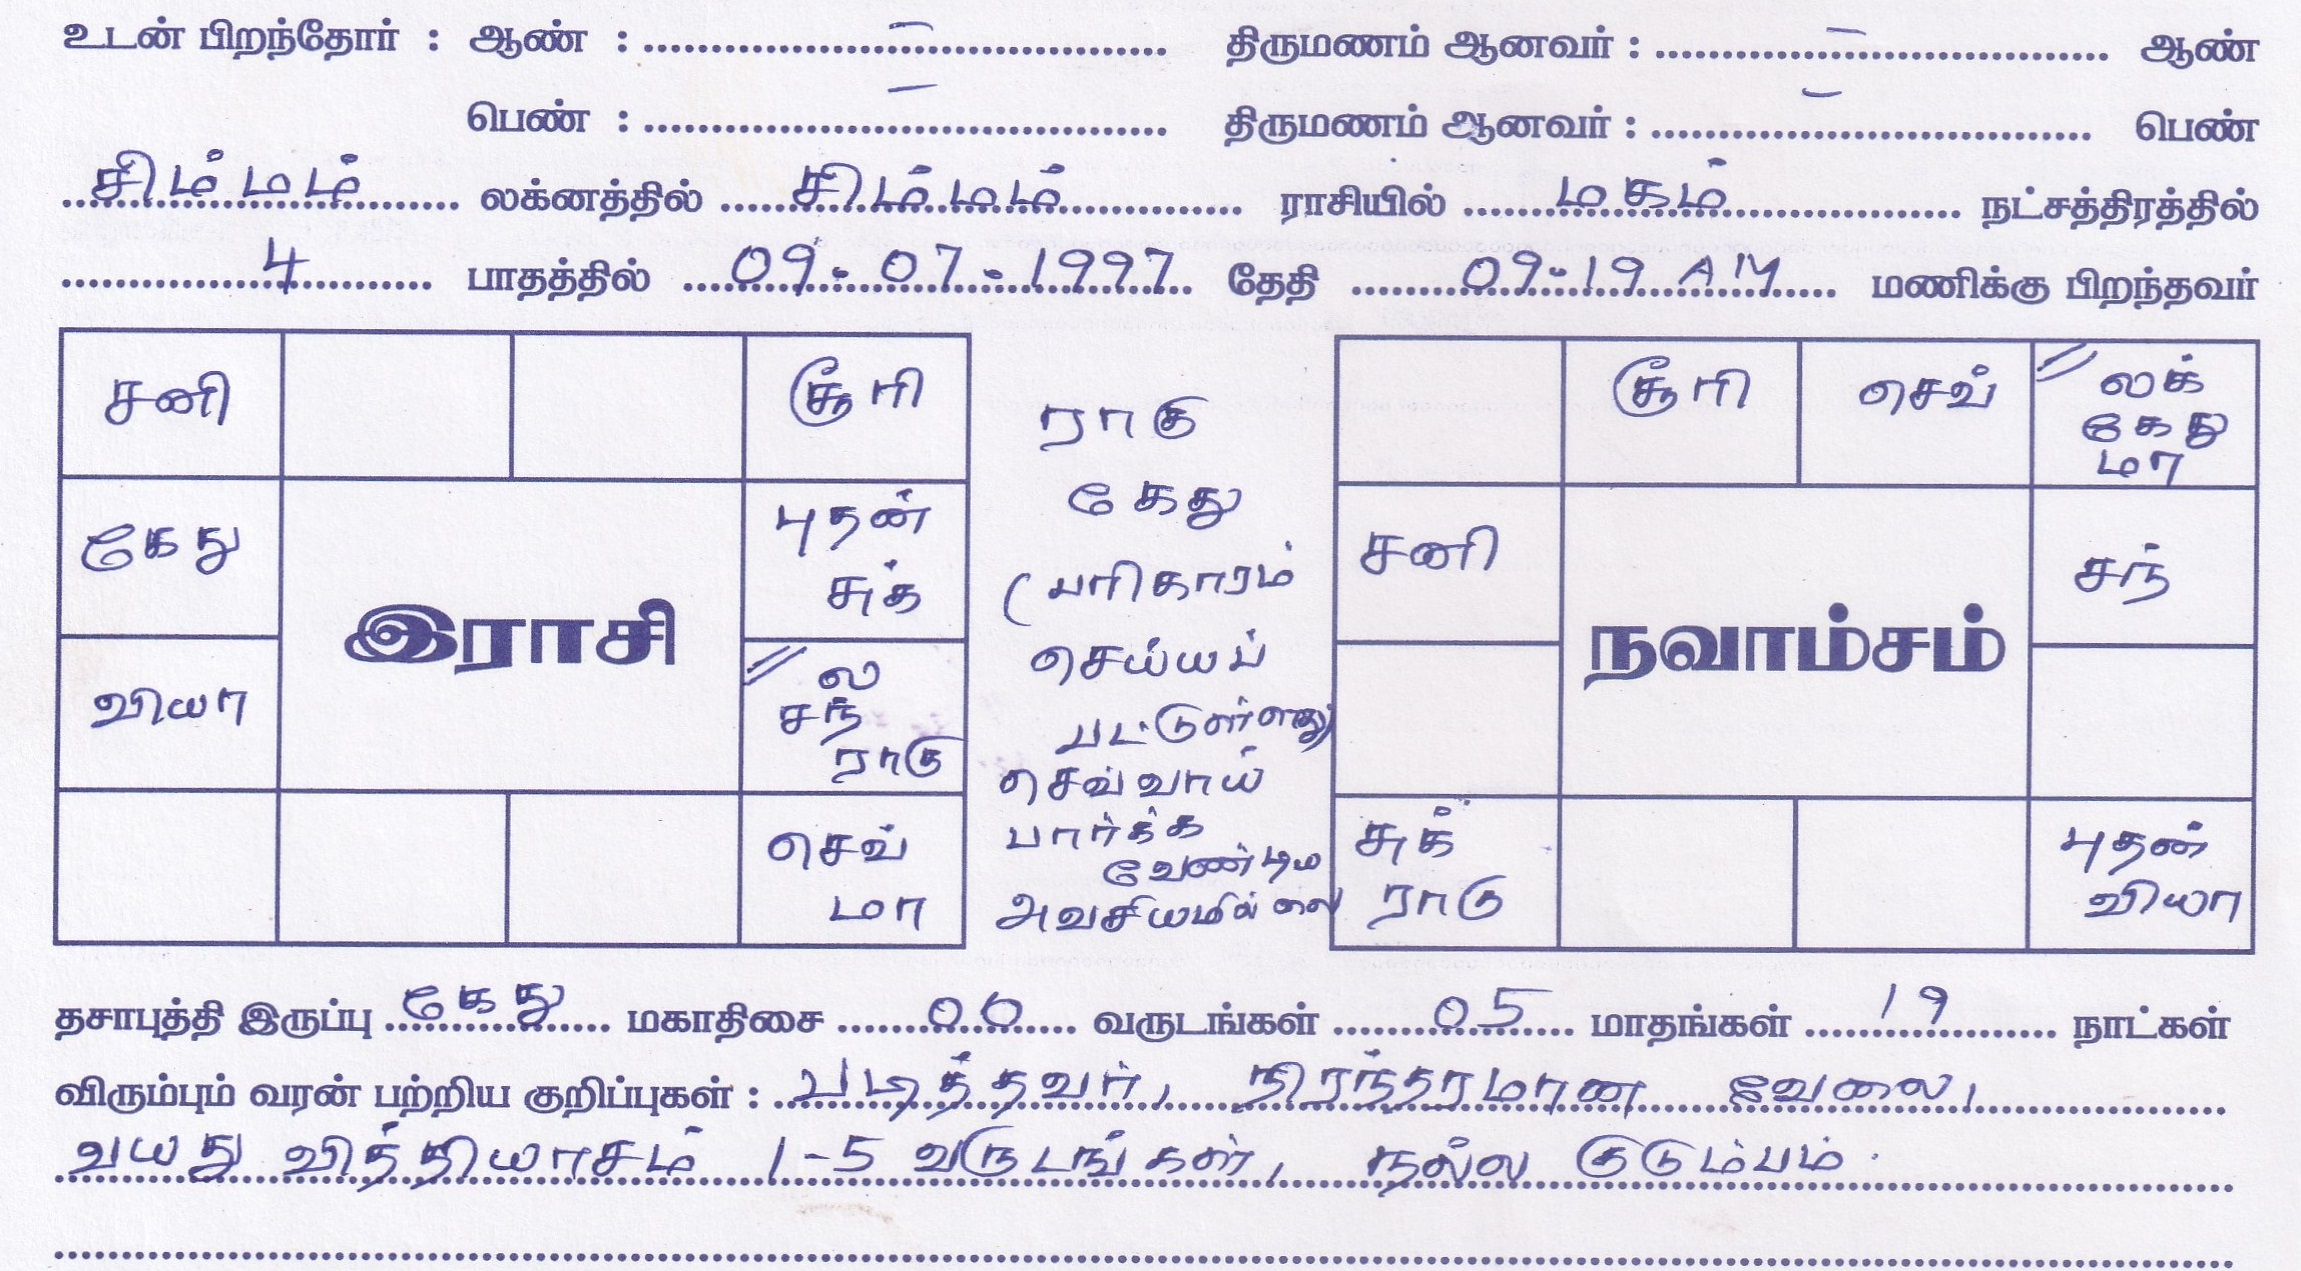 உடன் பிறந்தோர் : ஆண் : – திருமணம் ஆனவர் : – ஆண்
பெண் : – திருமணம் ஆனவர் : – பெண்
சிம்மம் லக்னத்தில் சிம்மம் ராசியில் மகம் நட்சத்திரத்தில்
4 பாதத்தில் 09-07-1997 தேதி 09-19 AM மணிக்கு பிறந்தவர்
சனி
சூரி
கேது
புதன்
சுக்
இராசி
வியா
ல
சந்
ராகு
செவ்
மா
ராகு
கேது
(பரிகாரம்
செய்யப்
பட்டுள்ளது
செவ்வாய்
பார்க்க
வேண்டிய
அவசியமில்லை
சூரி
செவ்
லக்
கேது
மா
சனி
சந்
நவாம்சம்
சுக்
ராகு
புதன்
வியா
தசாபுத்தி இருப்பு கேது மகாதிசை 00 வருடங்கள் 05 மாதங்கள் 19 நாட்கள்
விரும்பும் வரன் பற்றிய குறிப்புகள் : படித்தவர், நிரந்தரமான வேலை,
வயது வித்தியாசம் 1-5 வருடங்கள், நல்ல குடும்பம்.